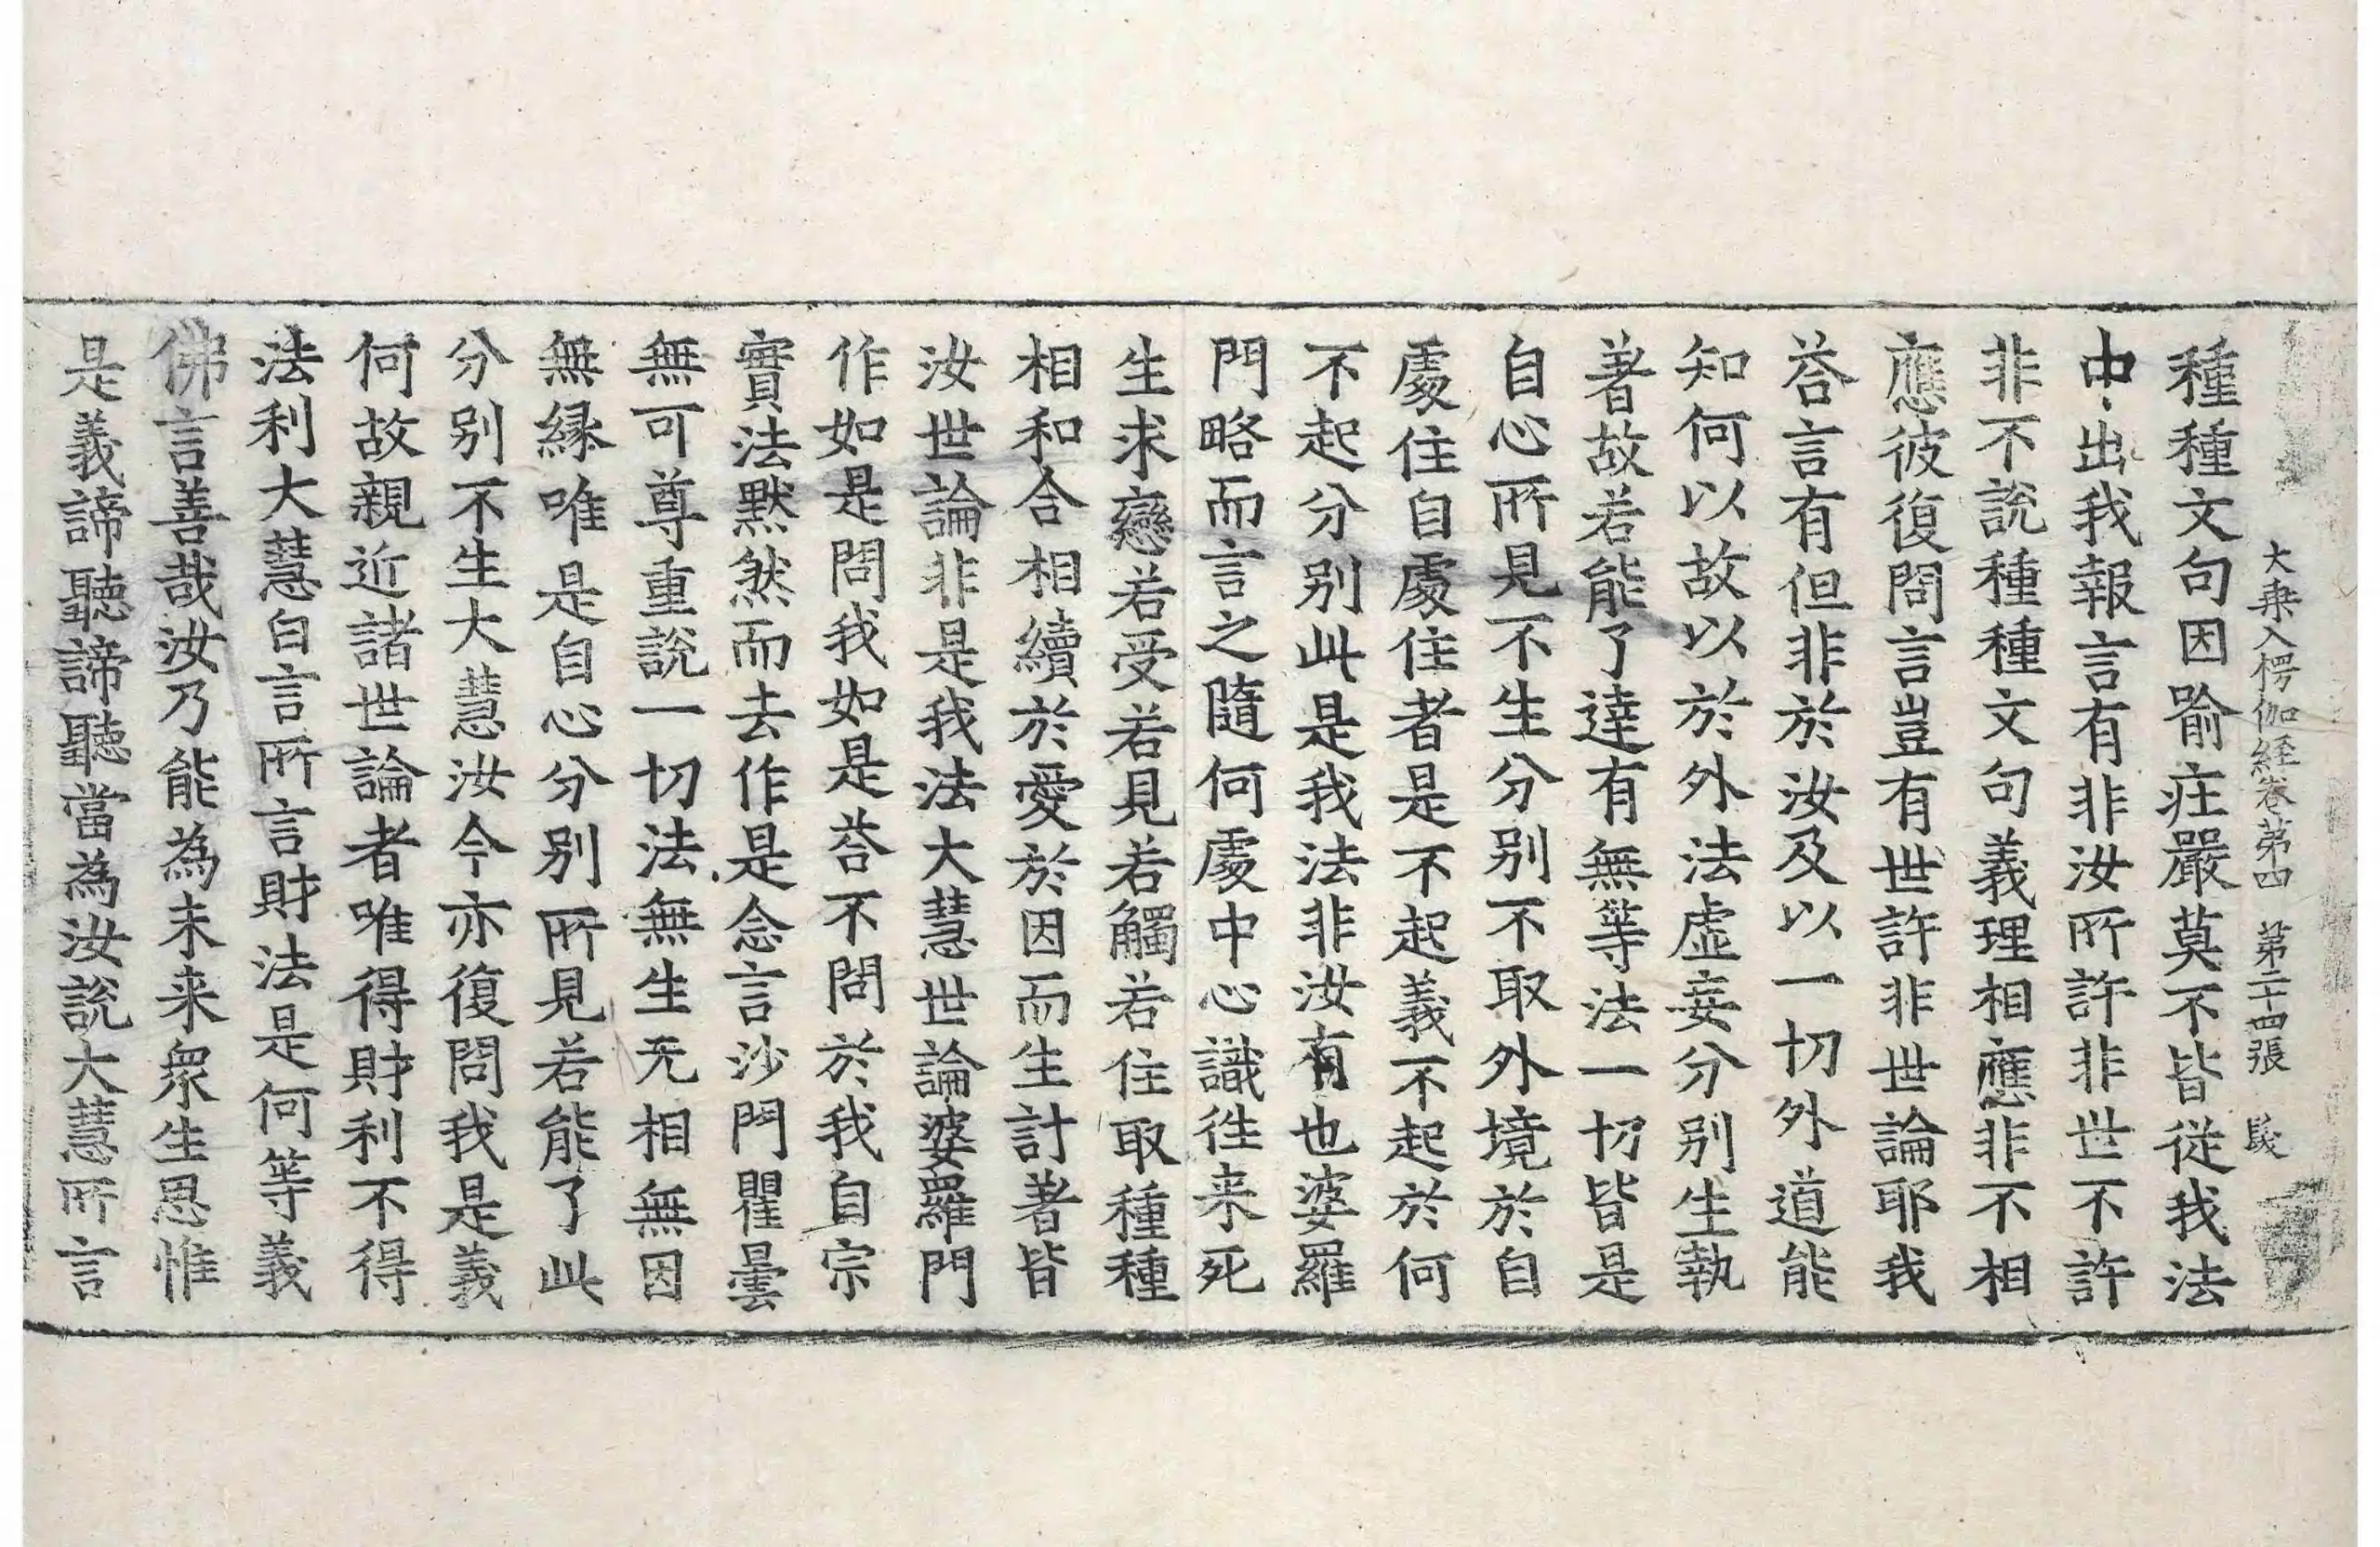 大乗入楞伽経卷第四 第二十四張
種種文句因喻庄嚴莫不皆從我法
中出我報言有非汝所許非世不許
非不說種種文句義理相應非不相
應彼復問言豈有世許非世論耶我
荅言有但非於汝及以一切外道能
知何以故以於外法虛妄分別生執
著故若能了達有無等法一切皆是
自心所見不生分別不取外境於自
處住自處住者是不起義不起於何
不起分別此是我法非汝有也婆羅
門略而言之隨何處中心識徃来死
生求戀若受若見若觸若住取種種
相和合相續於愛於因而生計著皆
汝世論非是我法大慧世論婆羅門
作如是問我如是荅不問於我自宗
實法默然而去作是念言沙門瞿曇
無可尊重說一切法無生无相無因
無縁唯是自心分別所見若能了此
分別不生大慧汝今亦復問我是義
何故親近諸世論者唯得財利不得
法利大慧白言所言財法是何等義
佛言善哉汝乃能為未来衆生思惟
是義諦聽諦聽當為汝說大慧所言